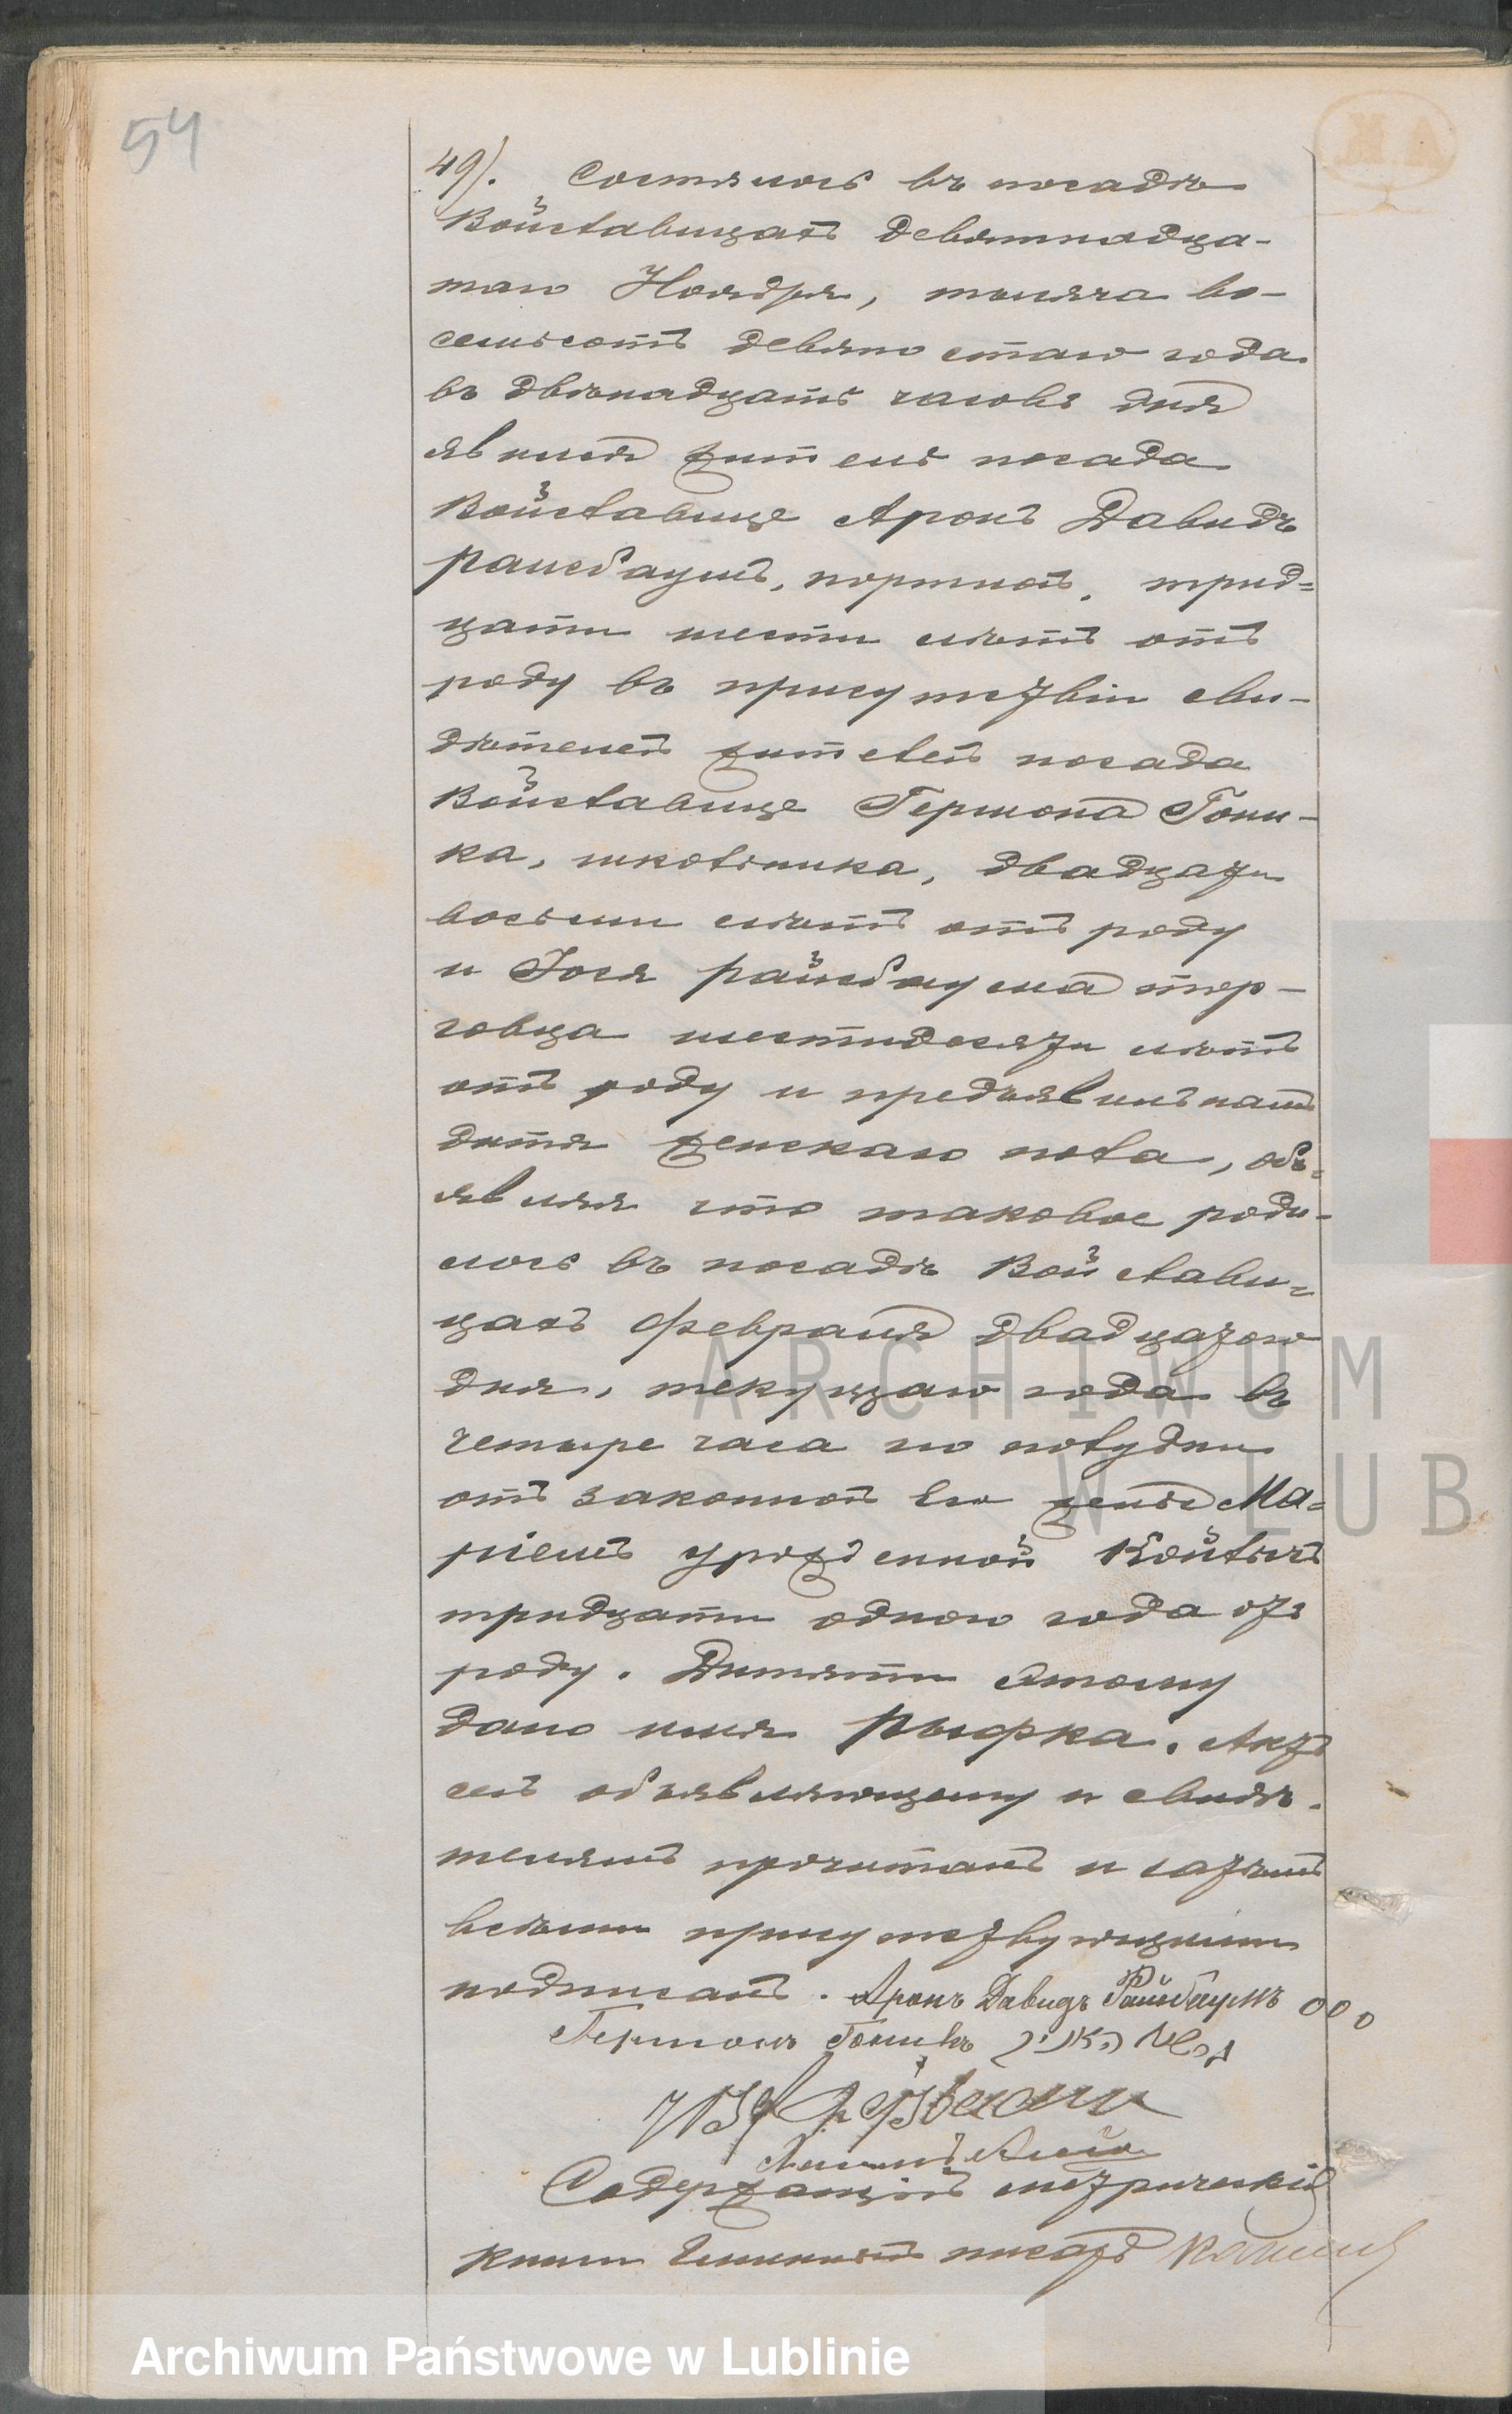 54
49). Состялось въ посадѣ
Войславицахъ девятнадца-
таго Ноября, тысяча во-
семьсотъ девяностаго года
въ двѣнадцать часовъ дня
явился житель посада
Войславице Аронъ Давидъ
Раисбаумъ, портной, трид=
цати шести лѣтъ отъ
роду въ присутствіи сви-
дѣтелей жителей посада
Войславице Гершона Гони-
ка, школьника, двадцати
восьми лѣтъ отъ роду
и Іося Райсбаума тор-
говца шестидесяти лѣтъ
отъ роду и предъявилъ намъ
дитя женскаго пола, объ=
являя что таковое роди-
лось въ посадѣ Войслави=
цахъ Февраля двадцатого
дня, текущаго года въ
четыре часа по полудни
отъ законной Его жены Ма=
ріемъ урожденной
тридцати одного года отъ
роду. Дитяти Этому
дано имя Рыфка. Актъ
сей объявляющему и свидѣ-
телямъ прочитанъ и затѣмъ
всѣми присутствующими
подписанъ. Аронъ Давидъ Райсбаумъ
Гершонъ Гоникъ
Содержащій метрическія
книги Гминный писарь
ARCHIWUM
W LUB
Archiwum Państwowe w Lublinie